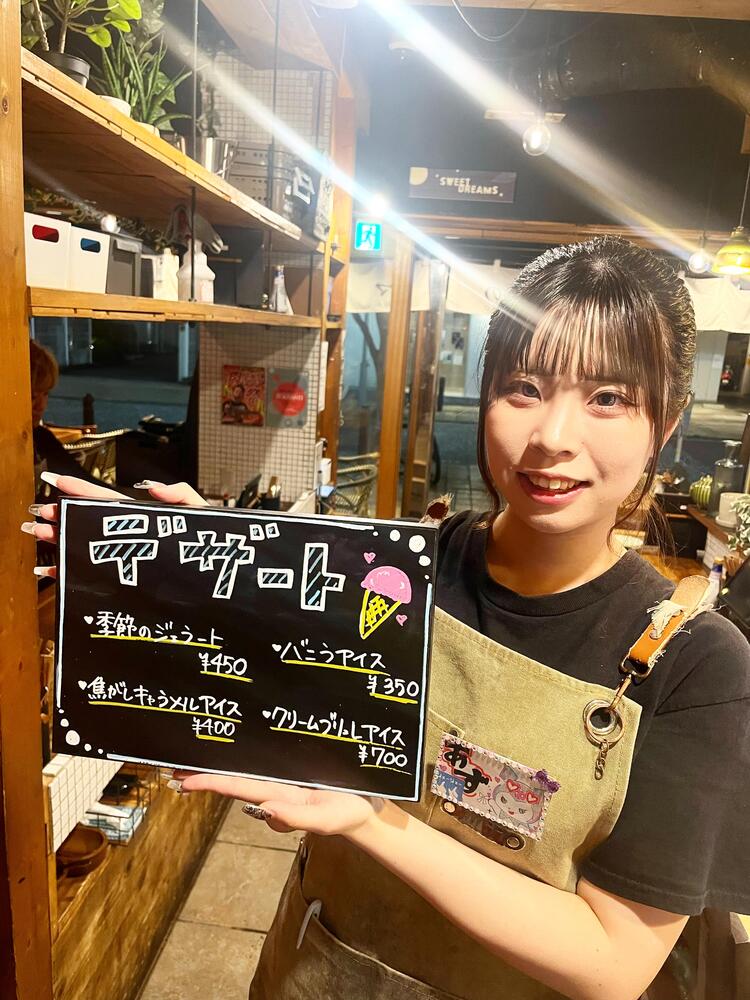 SWEET
DREAMS
デザート
季節のジェラート
¥450
バニラアイス
¥350
焦がしキャラメルアイス
¥400
クリームブリュレアイス
¥700
あず